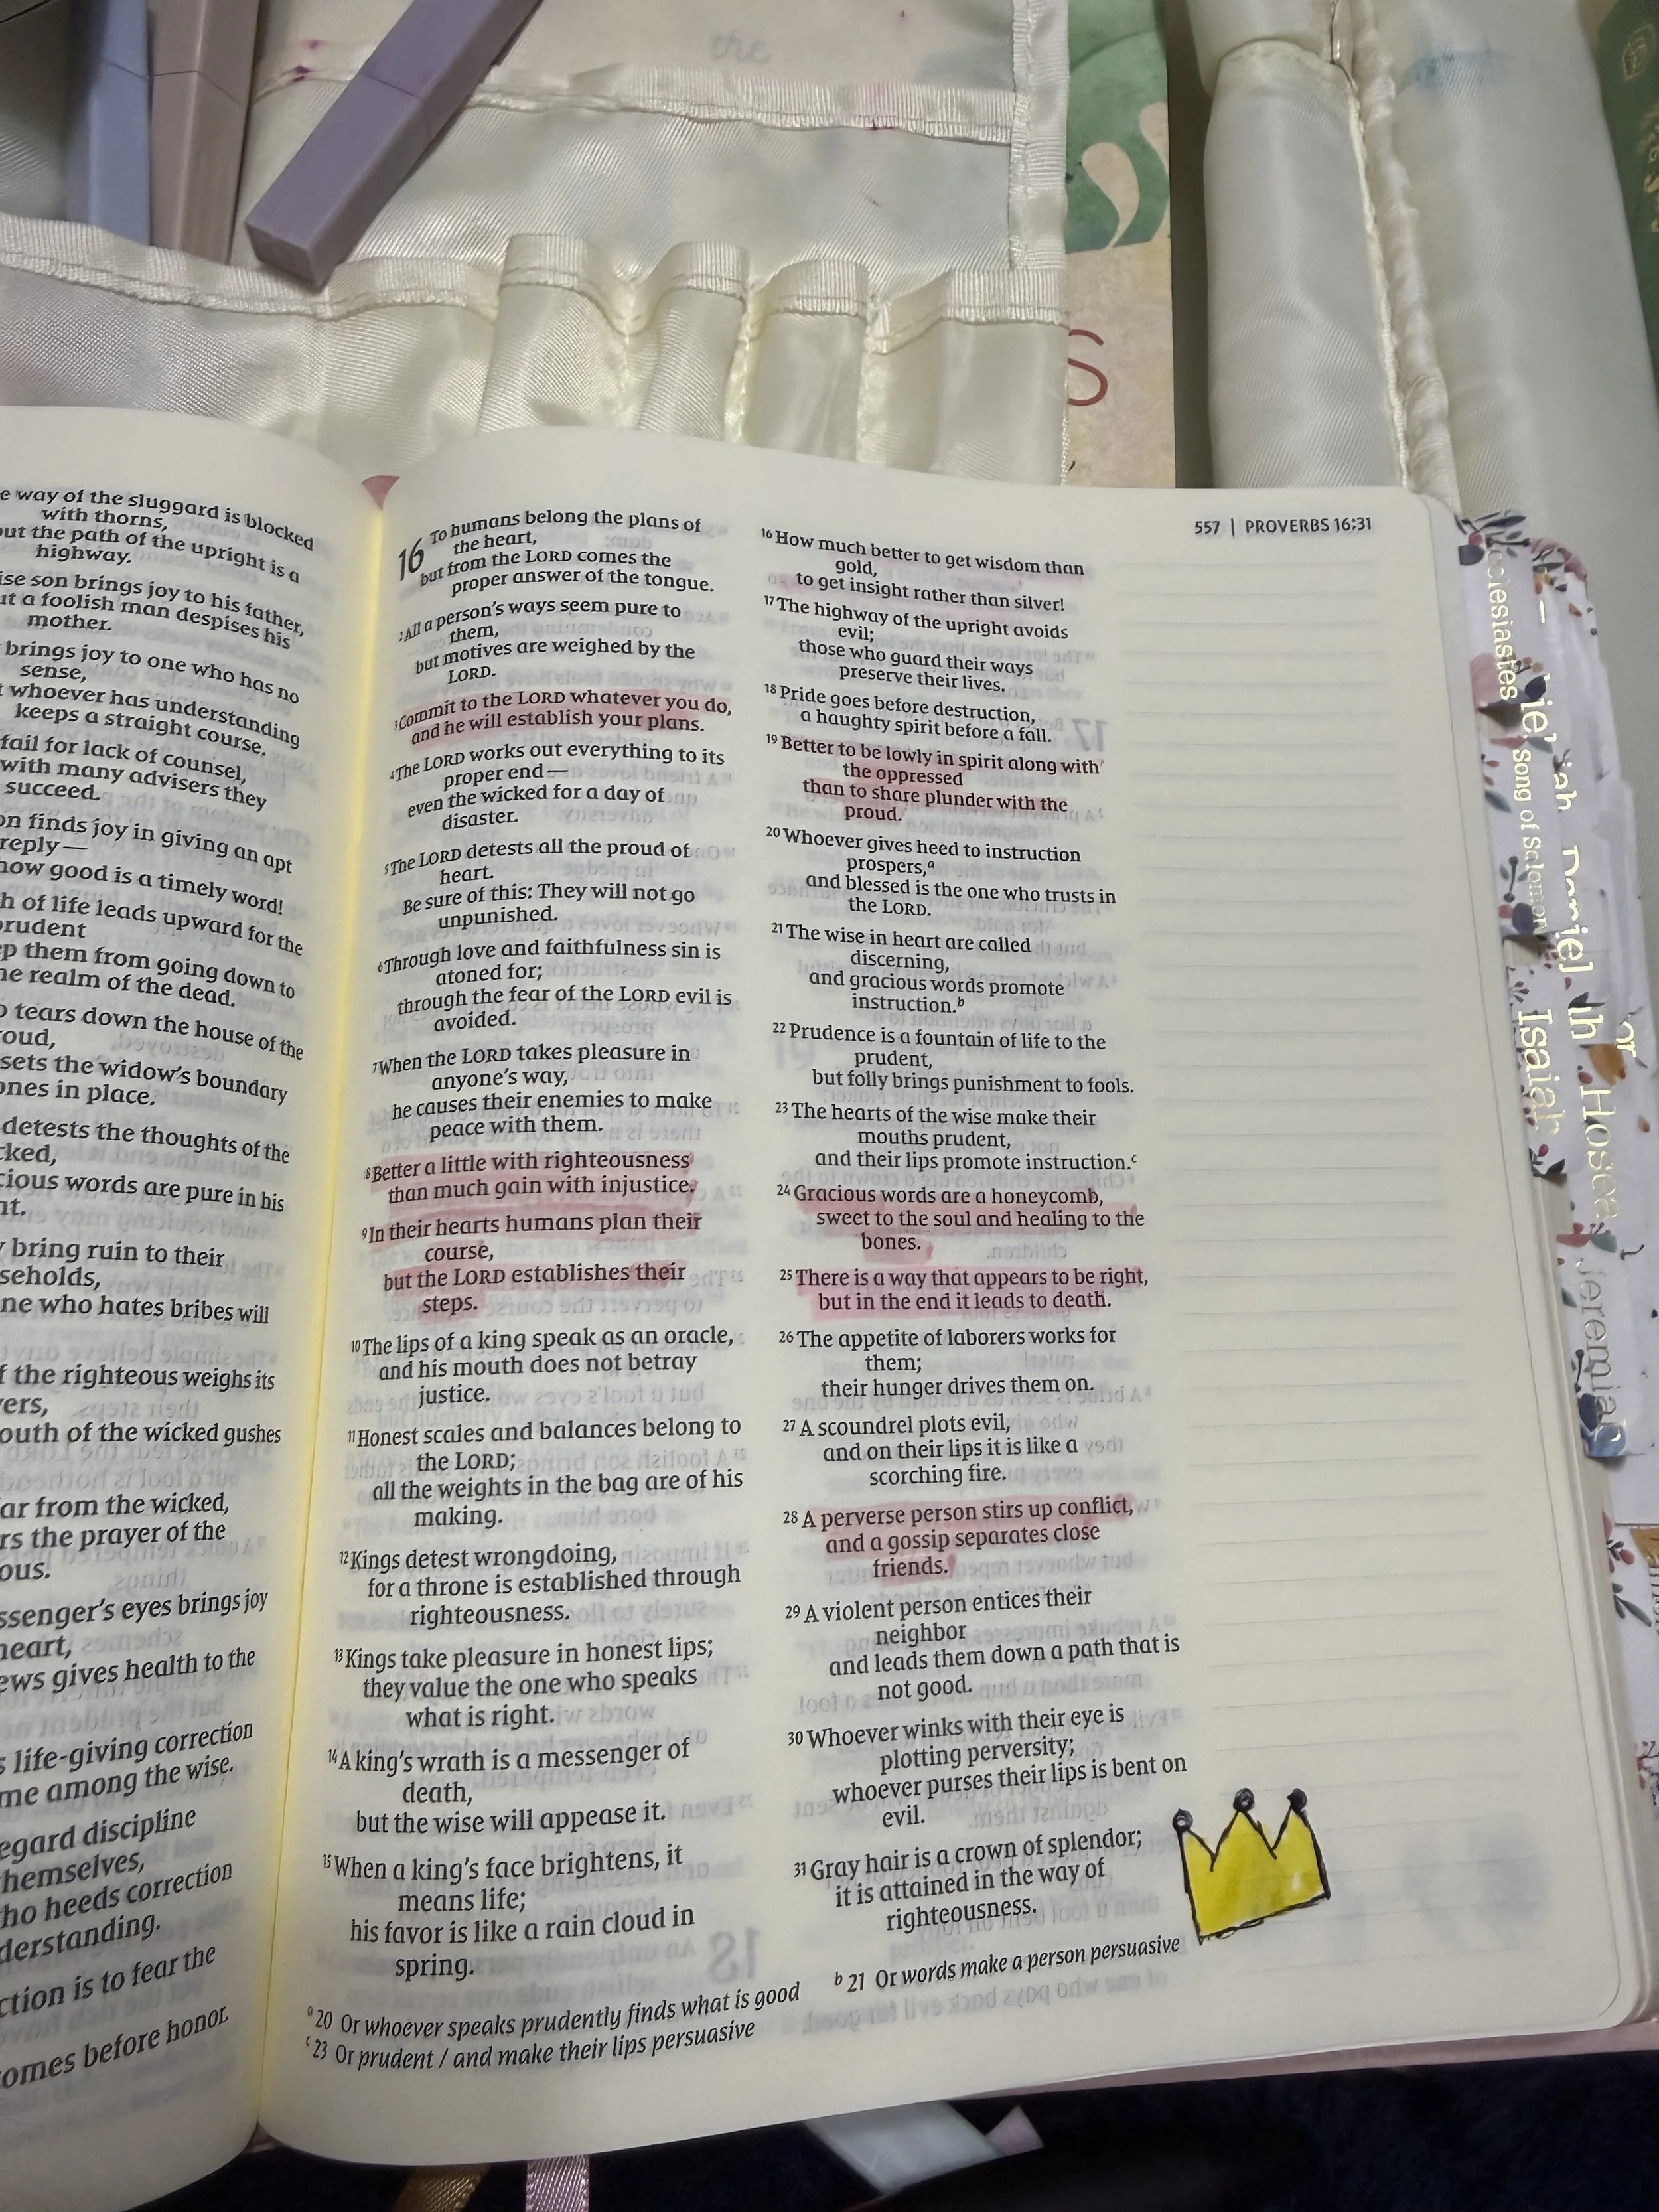 the
S
e way of the sluggard is blocked
with thorns,
out the path of the upright is a
highway.
ise son brings joy to his father,
ut a foolish man despises his
mother.
brings joy to one who has no
sense,
t whoever has understanding
keeps a straight course.
fail for lack of counsel,
with many advisers they
succeed.
on finds joy in giving an apt
reply—
how good is a timely word!
h of life leads upward for the
prudent
ep them from going down to
he realm of the dead.
o tears down the house of the
roud,
sets the widow's boundary
ones in place.
detests the thoughts of the
cked,
cious words are pure in his
ht.
y bring ruin to their
seholds,
ne who hates bribes will
f the righteous weighs its
ers,
outh of the wicked gushes
ar from the wicked,
rs the prayer of the
ous.
ssenger's eyes brings joy
heart,
ews gives health to the
s life-giving correction
me among the wise.
egard discipline
hemselves,
ho heeds correction
derstanding.
ction is to fear the
omes before honor.
16 To humans belong the plans of
the heart,
but from the LORD comes the
proper answer of the tongue.
2 All a person's ways seem pure to
them,
but motives are weighed by the
LORD.
3 Commit to the LORD whatever you do,
and he will establish your plans.
4 The LORD works out everything to its
proper end—
even the wicked for a day of
disaster.
5 The LORD detests all the proud of
heart.
Be sure of this: They will not go
unpunished.
6 Through love and faithfulness sin is
atoned for;
through the fear of the LORD evil is
avoided.
7 When the LORD takes pleasure in
anyone's way,
he causes their enemies to make
peace with them.
8 Better a little with righteousness
than much gain with injustice.
9 In their hearts humans plan their
course,
but the LORD establishes their
steps.
10 The lips of a king speak as an oracle,
and his mouth does not betray
justice.
11 Honest scales and balances belong to
the LORD;
all the weights in the bag are of his
making.
12 Kings detest wrongdoing,
for a throne is established through
righteousness.
13 Kings take pleasure in honest lips;
they value the one who speaks
what is right.
14 A king's wrath is a messenger of
death,
but the wise will appease it.
15 When a king's face brightens, it
means life;
his favor is like a rain cloud in
spring.
557 | PROVERBS 16:31
16 How much better to get wisdom than
gold,
to get insight rather than silver!
17 The highway of the upright avoids
evil;
those who guard their ways
preserve their lives.
18 Pride goes before destruction,
a haughty spirit before a fall.
19 Better to be lowly in spirit along with
the oppressed
than to share plunder with the
proud.
20 Whoever gives heed to instruction
prospers,a
and blessed is the one who trusts in
the LORD.
21 The wise in heart are called
discerning,
and gracious words promote
instruction.b
22 Prudence is a fountain of life to the
prudent,
but folly brings punishment to fools.
23 The hearts of the wise make their
mouths prudent,
and their lips promote instruction.c
24 Gracious words are a honeycomb,
sweet to the soul and healing to the
bones.
25 There is a way that appears to be right,
but in the end it leads to death.
26 The appetite of laborers works for
them;
their hunger drives them on.
27 A scoundrel plots evil,
and on their lips it is like a
scorching fire.
28 A perverse person stirs up conflict,
and a gossip separates close
friends.
29 A violent person entices their
neighbor
and leads them down a path that is
not good.
30 Whoever winks with their eye is
plotting perversity;
whoever purses their lips is bent on
evil.
31 Gray hair is a crown of splendor;
it is attained in the way of
righteousness.
a 20 Or whoever speaks prudently finds what is good
b 21 Or words make a person persuasive
c 23 Or prudent / and make their lips persuasive
cclesiastes
Song of Solomon
Isaiah
Jeremiah
Daniel
Hosea